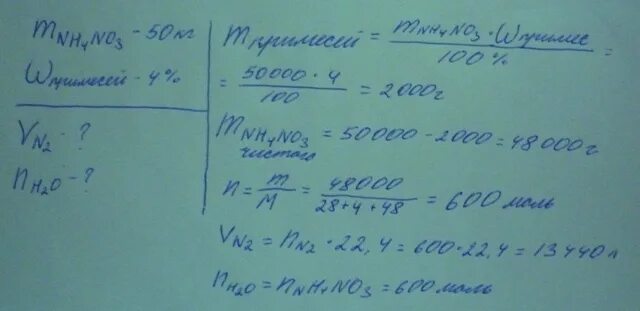 m NH₄NO₃ - 50 кг
W примесей - 4%
V N₂ - ?
n H₂O - ?
m примесей = m NH₄NO₃ · W примес / 100% =
= 50000 · 4 / 100 = 2000г
m NH₄NO₃ чистого = 50000 - 2000 = 48000г
n = m / M = 48000 / 28+4+48 = 600 моль
V N₂ = n N₂ · 22,4 = 600 · 22,4 = 13440 л
n H₂O = n NH₄NO₃ = 600 моль